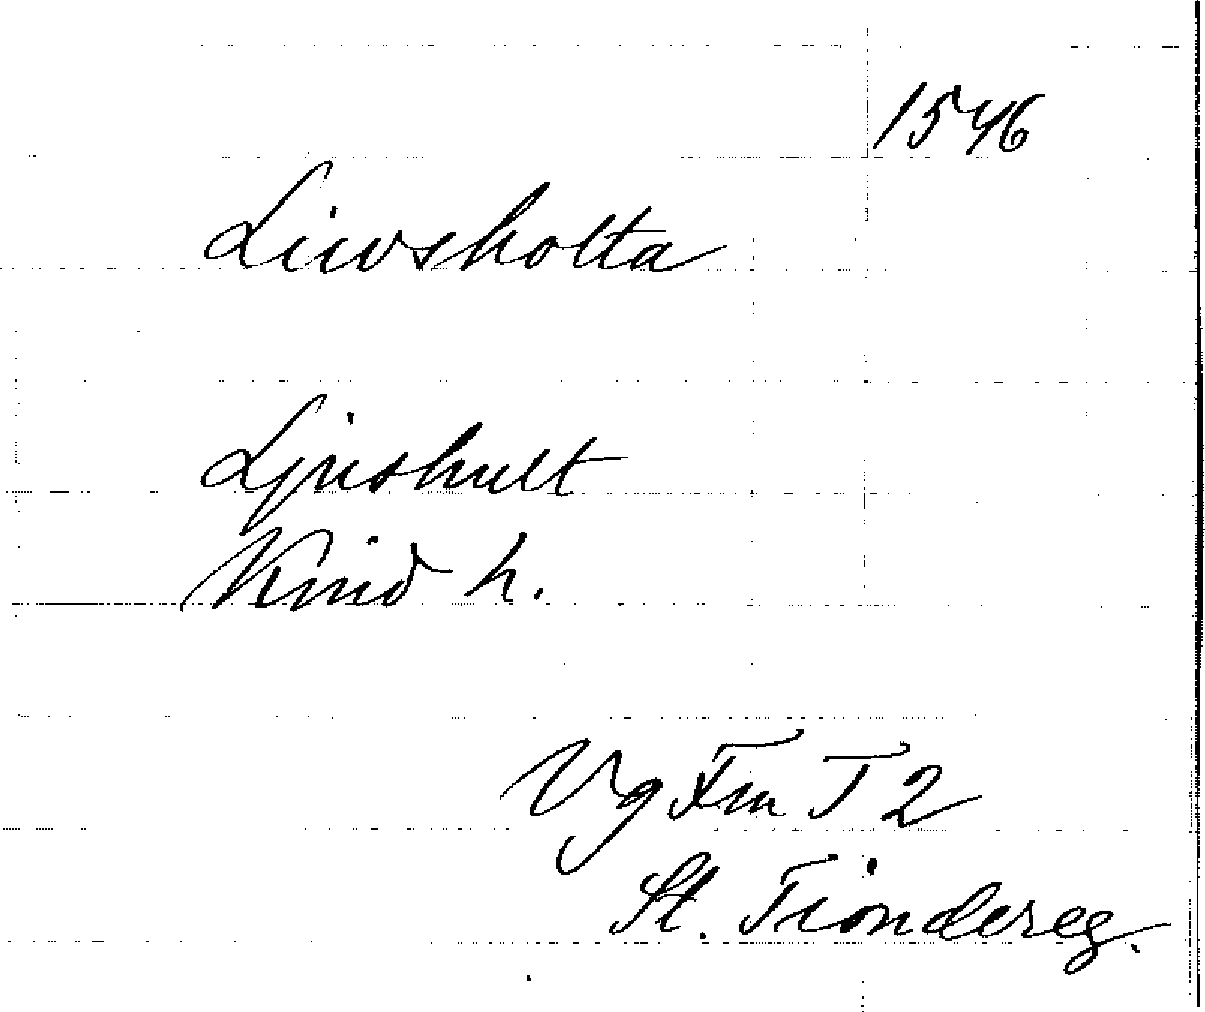 1546
Liwsholta
Ljushult
Kind h.
Vg Fm T 2
St. Tiondereg.